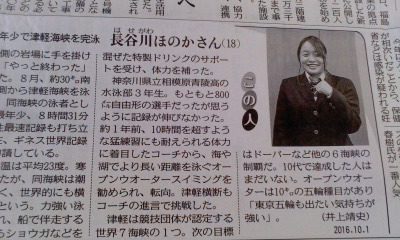 年少で津軽海峡を完泳
はせがわ
長谷川ほのかさん(18)
この人
側の岩場に手を掛け
「やっと終わった」
8月、約30㌔南
側から津軽海峡を泳
同海峡の泳者とし
最年少、8時間31分
性最速記録も打ち立
ギネス世界記録
申請している。
温は平均23度。寒
が、同海峡は潮
く、世界的にも横
という。力強い泳
れ、船で伴走する
ショウガなどを
混ぜた特製ドリンクのサポー
トを受け、体力を補った。
神奈川県立相模原青陵高の
水泳部3年生。もともと800
㍍自由形の選手だったが思う
ように記録が伸びなかった。
約1年前、10時間を超すよう
な猛練習にも耐えられる体力
に着目したコーチから、海や
湖でより長い距離を泳ぐオー
プンウオータースイミングを
勧められ、転向。津軽横断も
コーチの進言で挑戦した。
津軽は競技団体が認定する
世界7海峡の1つ。次の目標
はドーバーなど他の6海峡の
制覇だ。10代で達成した人は
まだいない。オープンウオー
ターは10㌔の五輪種目があり
「東京五輪も出たい気持ちが
強い」。
(井上靖史)
2016.10.1